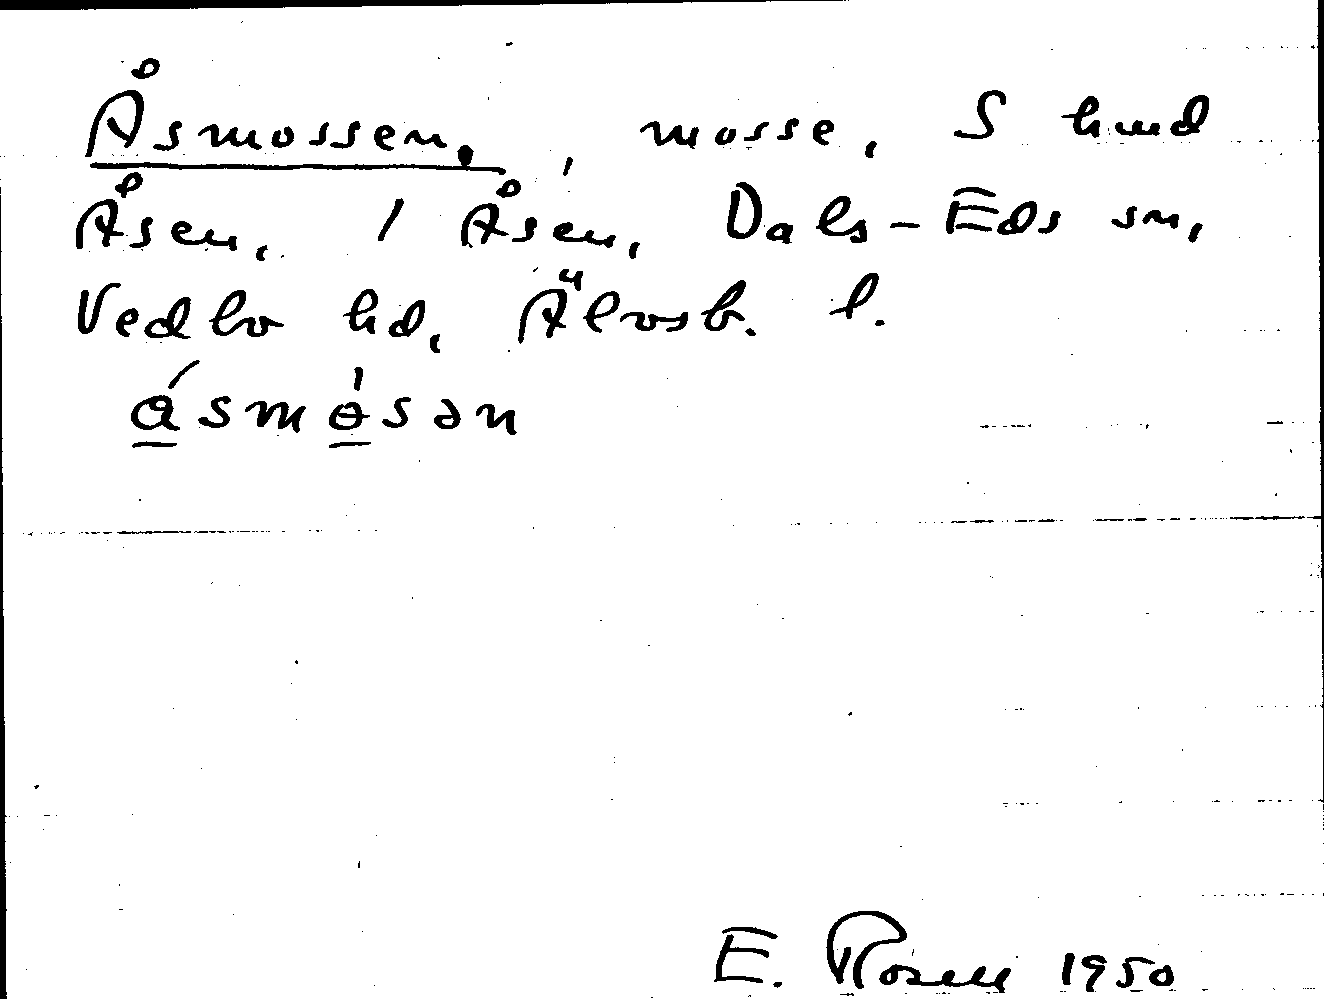 Åsmossen, , mosse, S hmd
Åsen, / Åsen, Dals-Eds sn,
Vedbo hd, Älvsb. l.
á̲smɵ̲̍sən
E. Rosell 1950